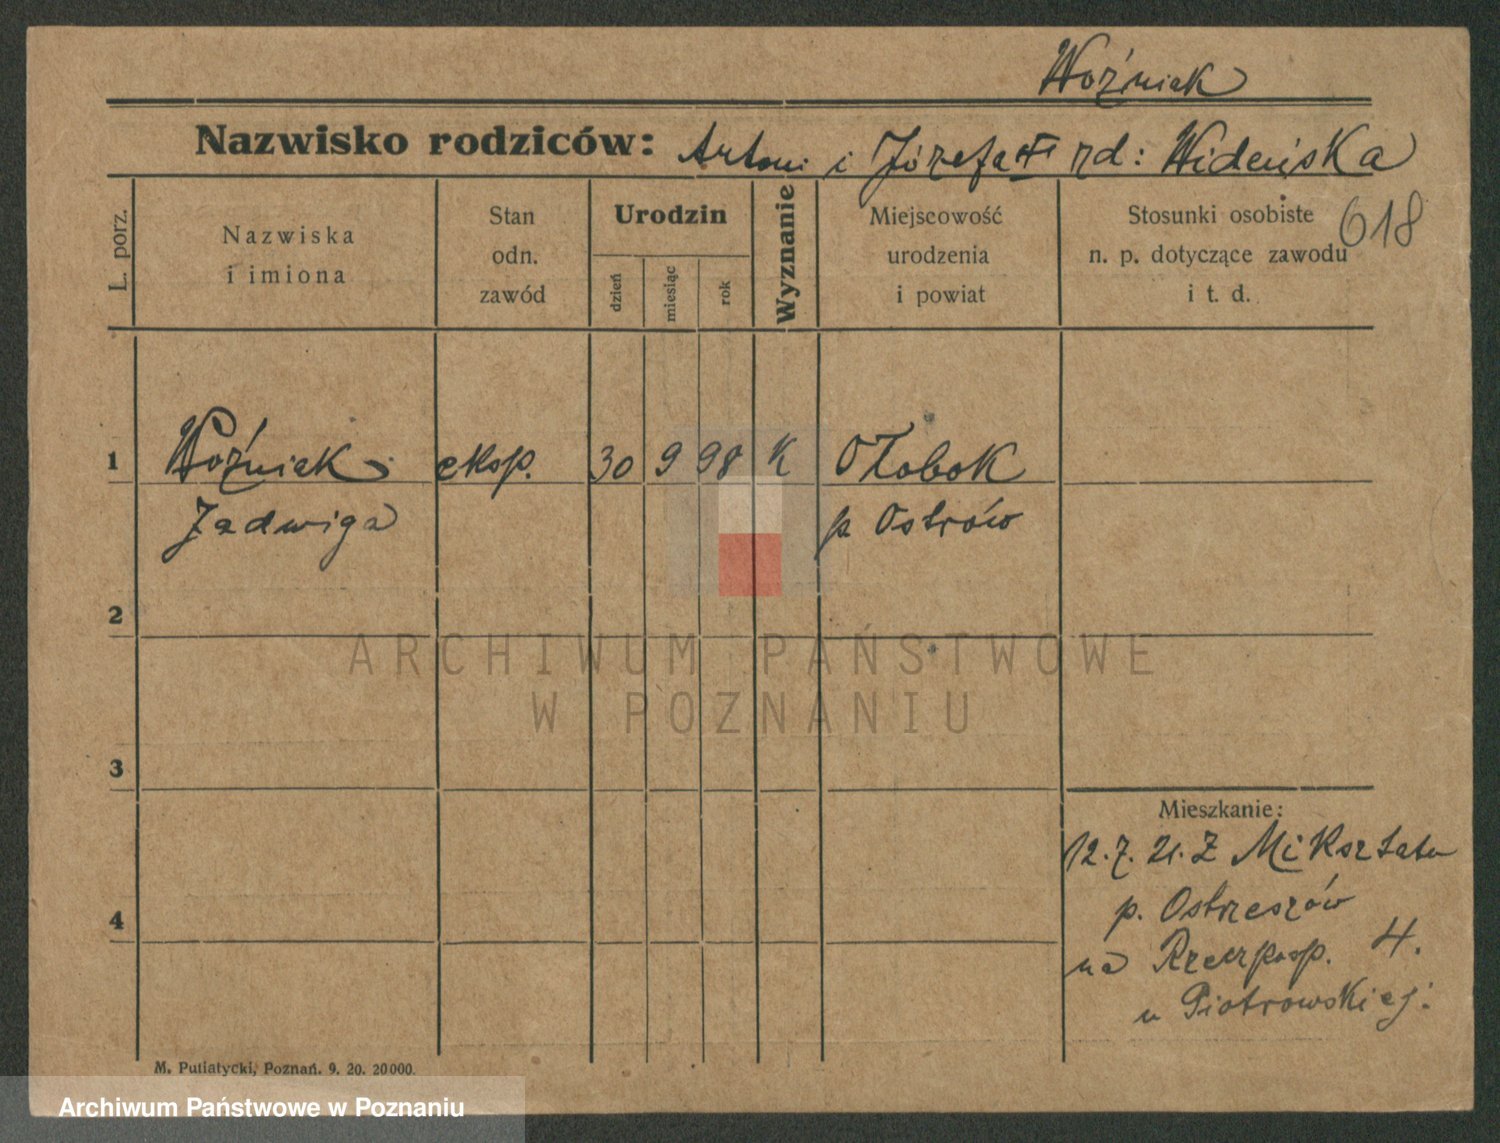 Woźniak
Nazwisko rodziców: Antoni i Józefa rd: Wideńska
618
L. porz.
Nazwiska i imiona
Stan odn. zawód
Urodzin
dzień
miesiąc
rok
Wyznanie
Miejscowość urodzenia i powiat
Stosunki osobiste n. p. dotyczące zawodu i t. d.
1 Woźniak eksp. 30 9 98 K Ołobok
Jadwiga p Ostrów
2
3
4
Mieszkanie:
12.7.21. Z Mikształu
p. Ostrzeszów
na Rzeczposp. 4.
u Piotrowskiej:
M. Putiatycki, Poznań. 9. 20. 20000.
ARCHIWUM PAŃSTWOWE
W POZNANIU
Archiwum Państwowe w Poznaniu